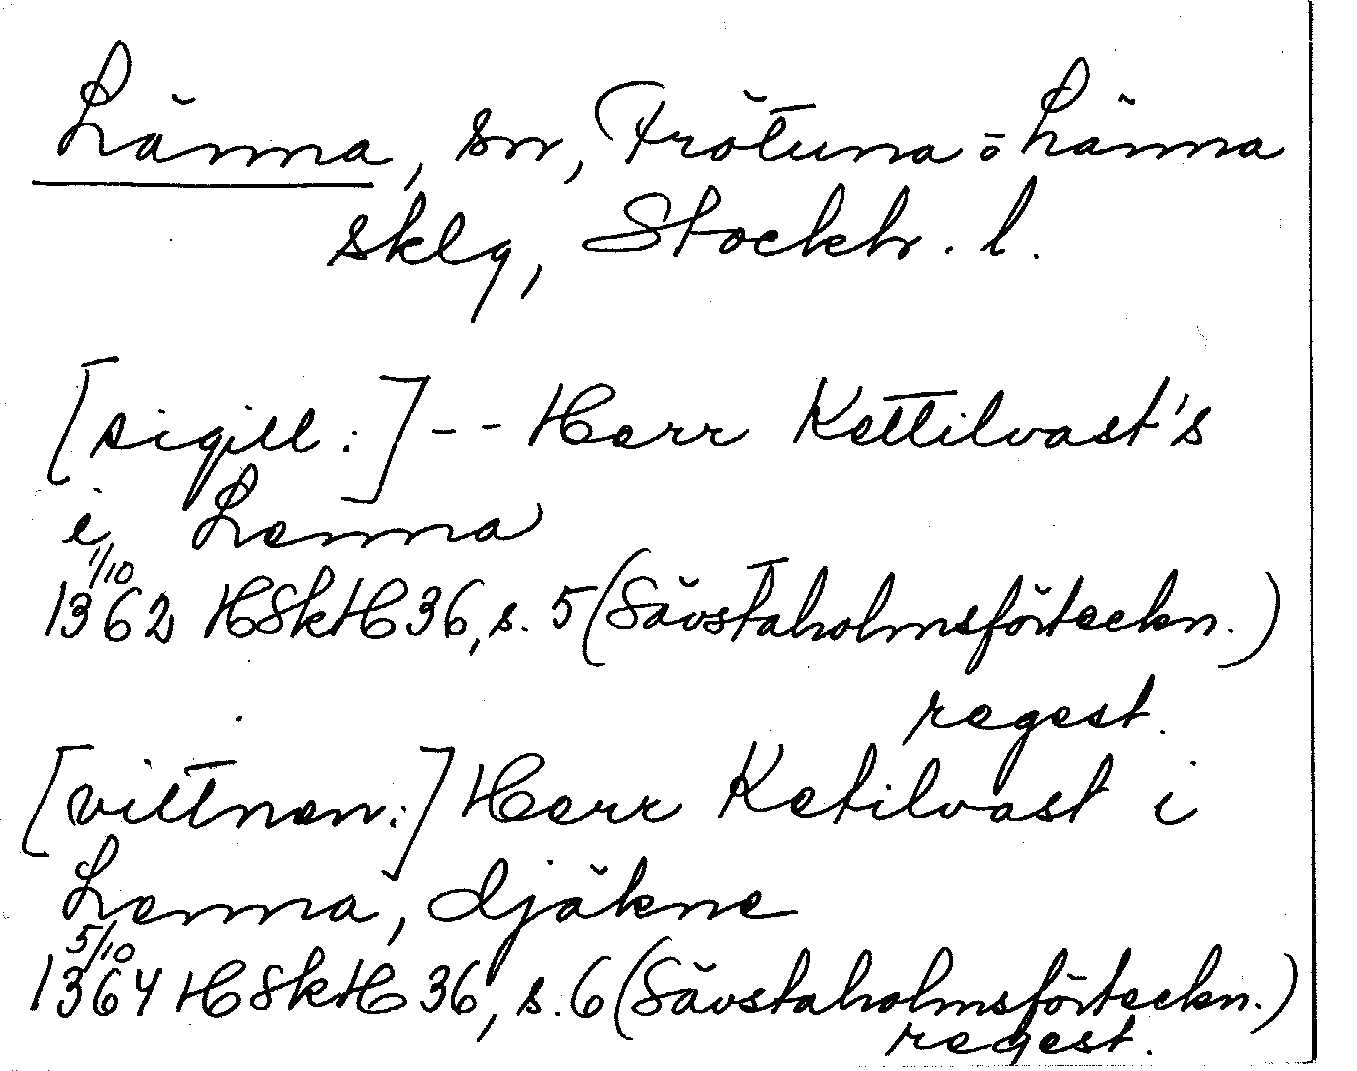 Länna, sn, Frötuna o Länna
sklg, Stockh. l.
[sigill:] - - Herr Kettilvast's
i Lenna
1/10
1362 HSkH 36, s. 5 (Sävstaholmsförteckn.)
regest.
[vittnen:] Herr Ketilvast i
Lenna, djäkne
5/10
1364 HSkH 36, s. 6 (Sävstaholmsförteckn.)
regest.